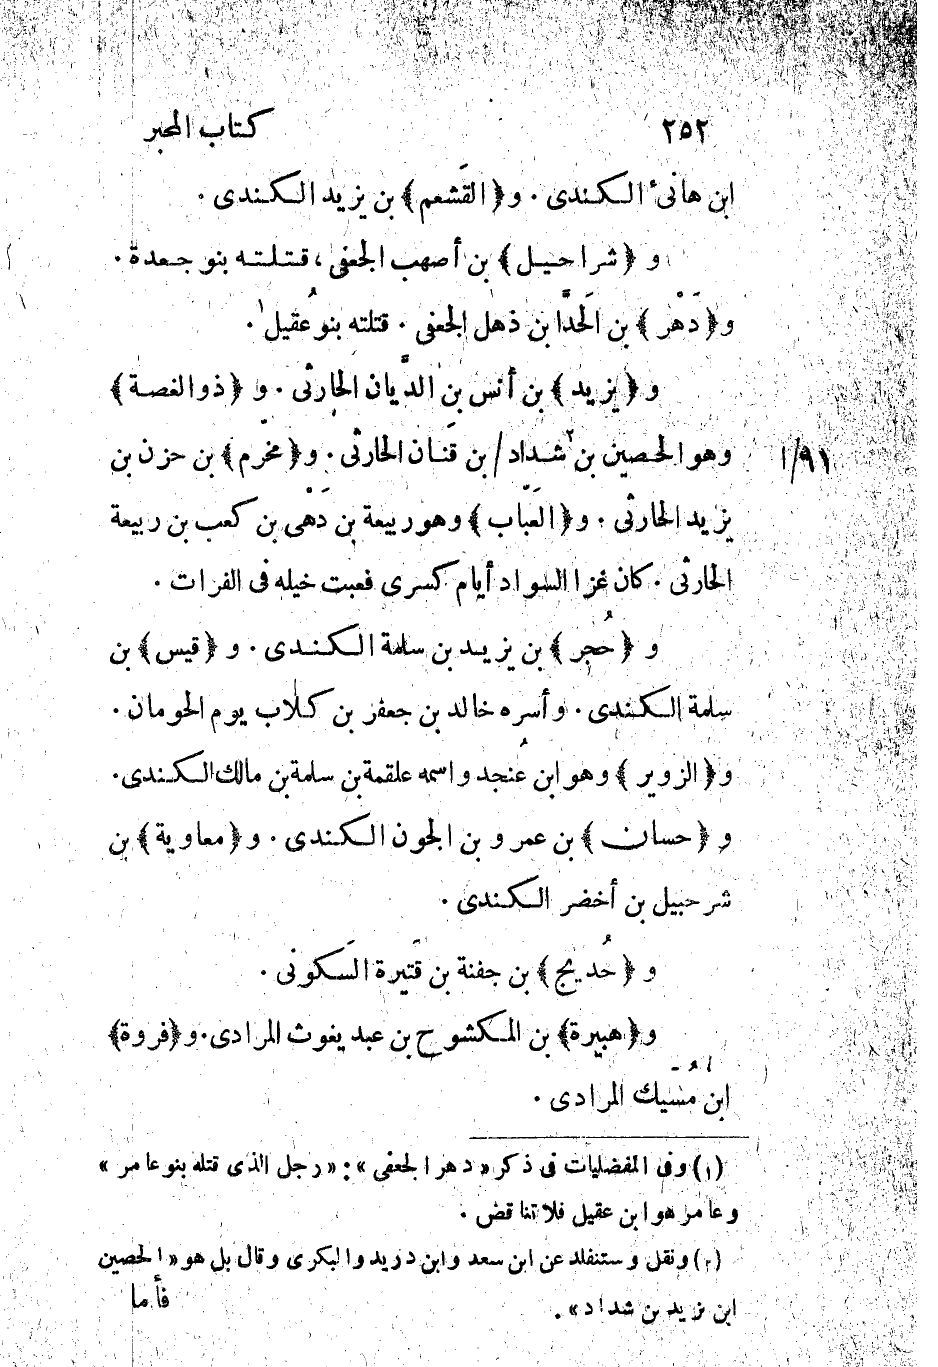 ٢٥٢ كتاب المحبر
ابن هانئ الكندى. و﴿القَشعم﴾ بن يزيد الكندى.
و﴿شراحيل﴾ بن أصهب الجعفى، قتلته بنو جعدة.
و﴿دَهْر﴾ بن الحَدَّا بن ذهل الجعفى. قتلته بنو عُقيل١.
و﴿يزيد﴾ بن أنس بن الديّان الحارثى. و﴿ذو الغصة﴾
٩١/ا وهو الحصين بن٢ شداد/ بن قَنان الحارثى. و﴿مخرّم﴾ بن حزن بن
يزيد الحارثى. و﴿العَبّاب﴾ وهو ربيعة بن دَهْى بن كعب بن ربيعة
الحارثى. كان غزا السواد أيام كسرى فعبت خيله فى الفرات.
و﴿حُجر﴾ بن يزيد بن سلمة الكندى. و﴿قيس﴾ بن
سلمة الكندى. وأسره خالد بن جعفر بن كلاب يوم الحومان.
و﴿الزوير﴾ وهو ابن عُنجد واسمه علقمة بن سلمة بن مالك الكندى.
و﴿حسان﴾ بن عمرو بن الجون الكندى. و﴿معاوية﴾ بن
شرحبيل بن أخضر الكندى.
و﴿حُديج﴾ بن جفنة بن قَتيرة السَكونى.
و﴿هبيرة﴾ بن المكشوح بن عبد يغوث المرادى. و﴿فروة﴾
ابن مُسَيك المرادى.
(١) وفى المفضليات فى ذكر «دهر الجعفى»: «رجل الذى قتله بنو عامر»
وعامر هو ابن عقيل فلا تناقض.
(٢) ونقل وستنفلد عن ابن سعد وابن دريد والبكرى وقال بل هو «الحصين
ابن يزيد بن شداد».
فأما